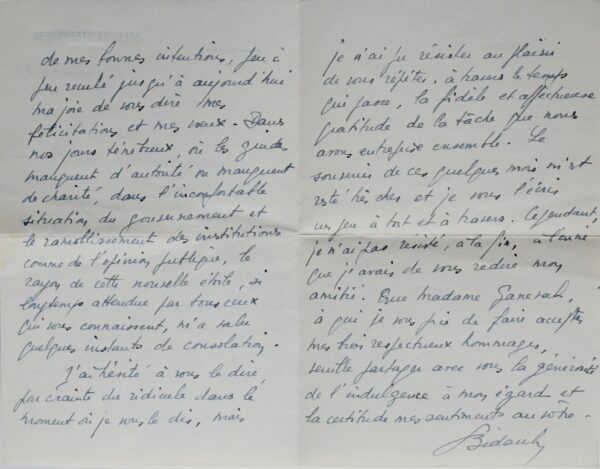 de mes bonnes intentions, j'ai à
peu reculé jusqu'à aujourd'hui
ma joie de vous dire mes
félicitations et mes vœux. Dans
nos jours ténébreux, où les guides
manquent d'autorité ou manquent
de charité, dans l'inconfortable
situation du gouvernement et
le ramollissement des institutions
comme de l'opinion publique, le
rayon de cette nouvelle étoile, si
longtemps attendue par tous ceux
qui vous connaissent, m'a valu
quelques instants de consolation.
J'ai hésité à vous le dire
par crainte du ridicule dans le
moment où je vous le dis, mais
je n'ai pu résister au plaisir
de vous répéter, à travers le temps
qui passe, la fidèle et affectueuse
gratitude de la tâche que nous
avons entreprise ensemble. Le
souvenir de ces quelques mois m'est
resté très cher et je vous l'écris
un peu à tort et à travers. Cependant,
je n'ai pas résisté, à la fin, à l'envie
que j'avais de vous redire mon
amitié. Que madame
à qui je vous prie de faire accepter
mes très respectueux hommages,
veuille partager avec vous la générosité
de l'indulgence à mon égard et
la certitude mes sentiments au vôtre.
Bidault